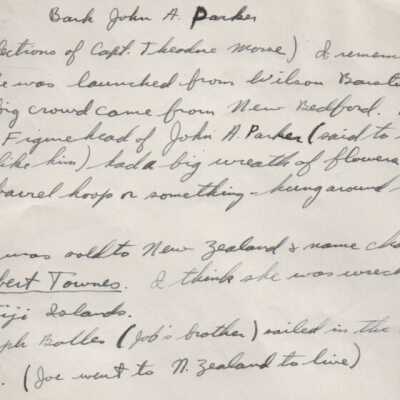 Bark John A. Parker
lections of Capt. Theodore Morse) I remem
e was launched from Wilson Barst
big crowd came from New Bedford.
Figurehead of John A. Parker (said to
like him) had a big wreath of flowers
barrel hoop or something - hung around
was sold to New Zealand & name cha
bert Townes. I think she was wreck
iji Islands.
ph Bolles (Job's brother) sailed in the
. (Joe went to N. Zealand to live)